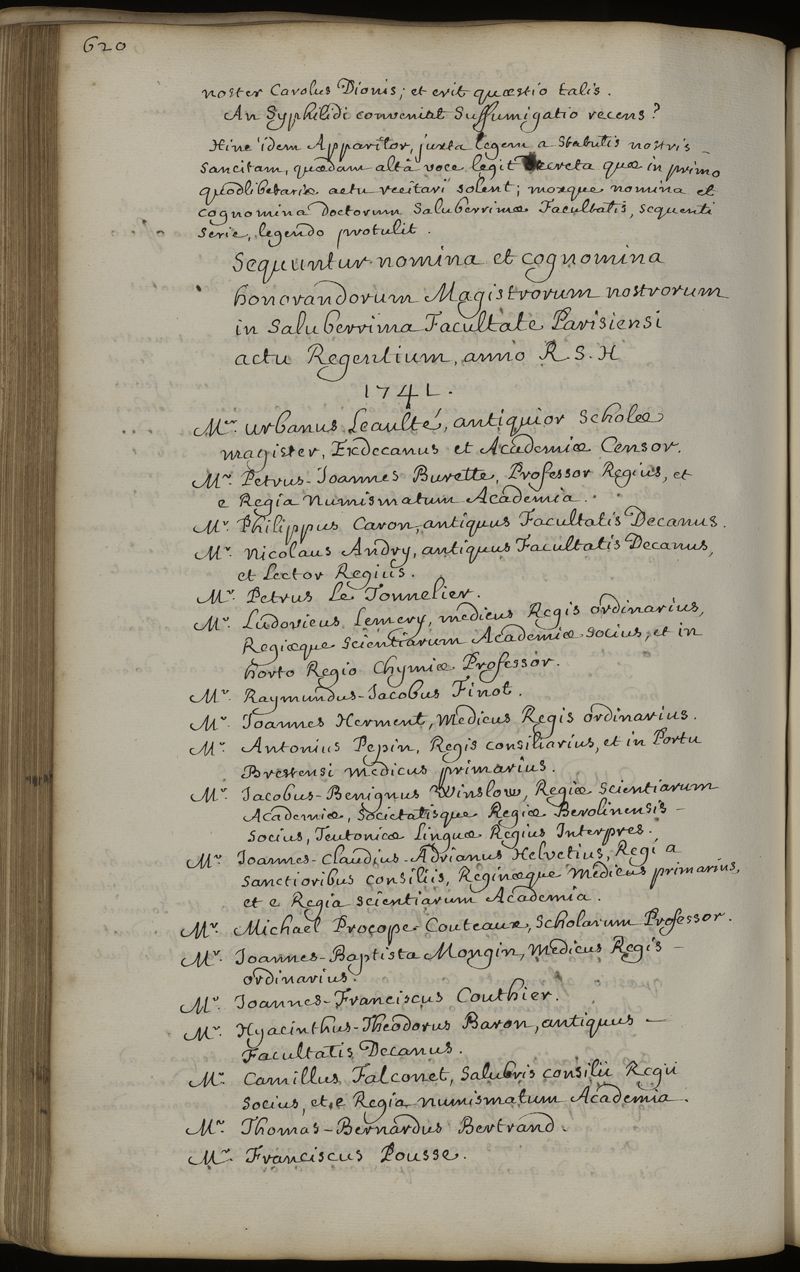 620
noster Carolus Dionis; et erit quæstio talis.
An Syphilidi conveniat Suffumigatio recens?
Hinc idem Apparitor, juxta legem a Statutis nostris
Sancitam, quædam altâ voce legit Decreta quæ in primo
quodlibetariæ actu recitari solent; moxque nomina et
cognomina Doctorum Saluberrimæ Facultatis, sequenti
Serie, legendo protulit.
Sequuntur nomina et cognomina
honorandorum Magistrorum nostrorum
in Saluberrima Facultate Parisiensi
actu Regentium, anno R.S.H
1741.
Mr. Urbanus Leaulté, antiquior Scholæ
magister, Exdecanus et Academiæ Censor.
Mr. Petrus-Joannes Burette, Professor Regius, et
e Regia Numismatum Academia.
Mr. Philippus Caron, antiquus Facultatis Decanus.
Mr. Nicolaus Andry, antiquus Facultatis Decanus,
et Lector Regius.
Mr. Petrus Le Tonnelier.
Mr. Ludovicus Lemery, medicus Regis ordinarius,
Regiæque Scientiarum Academiæ Socius, et in
horto Regio Chymiæ Professor.
Mr. Raymundus-Jacobus Finot.
Mr. Joannes Herment, Medicus Regis ordinarius.
Mr. Antonius Pepin, Regis consiliarius, et in Portu
Brestensi medicus primarius.
Mr. Jacobus-Benignus Winslow, Regiæ Scientiarum
Academiæ, Societatisque Regiæ Berolinensis -
Socius, Teutonicæ Linguæ Regius Interpres.
Mr. Joannes-Claudius-Adrianus Helvetius, Regi a
Sanctioribus consiliis, Reginæque Medicus primarius,
et e Regia scientiarum Academia.
Mr. Michael Procope-Couteaux, Scholarum Professor.
Mr. Joannes-Baptista Mongin, Medicus Regis -
ordinarius.
Mr. Joannes-Franciscus Couthier.
Mr. Hyacinthus-Theodorus Baron, antiquus -
Facultatis Decanus.
Mr. Camillus Falconet, Salubris consilii Regii
Socius, et e Regia numismatum Academia.
Mr. Thomas-Bernardus Bertrand.
Mr. Franciscus Pousse.